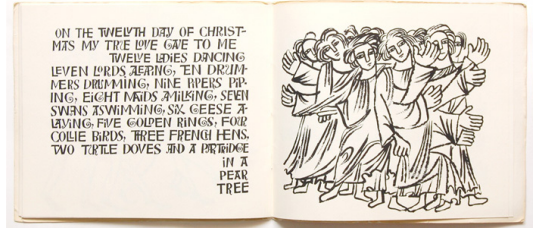 ON THE TWELVTH DAY OF CHRIST-
MAS MY TRUE LOVE GAVE TO ME
TWELVE LADIES DANCING
LEVEN LORDS ALEAPING, TEN DRUM-
MERS DRUMMING, NINE PIPERS PIP-
ING, EIGHT MAIDS A MILKING, SEVEN
SWANS ASWIMMING, SIX GEESE A-
LAYING, FIVE GOLDEN RINGS, FOUR
COLLIE BIRDS, THREE FRENCH HENS,
TWO TURTLE DOVES AND A PARTRIDGE
IN A
PEAR
TREE